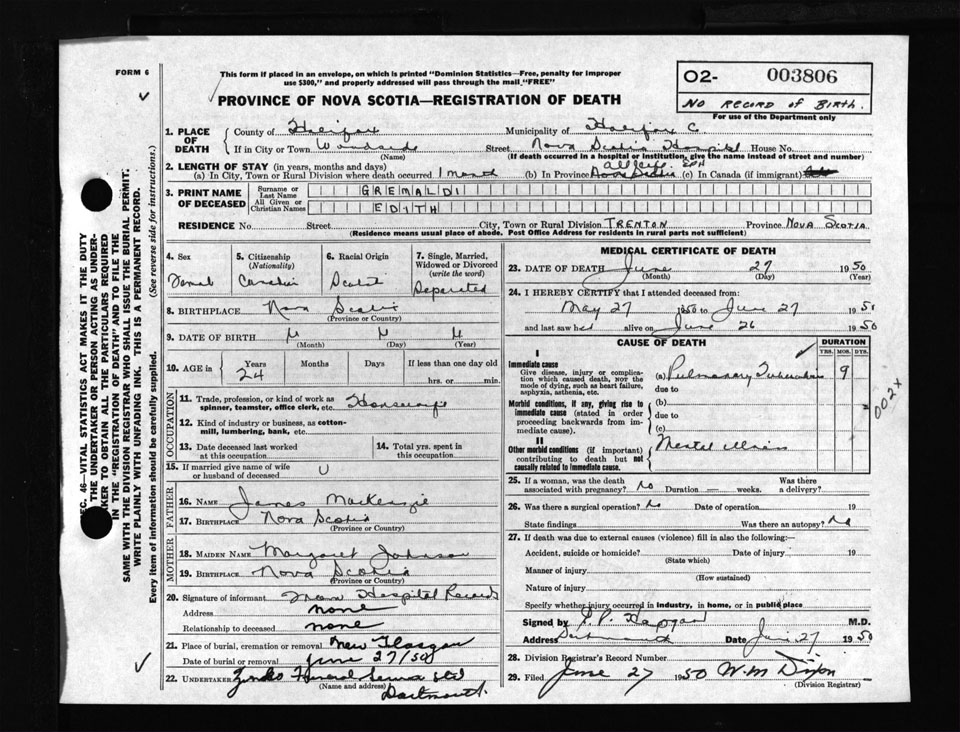 FORM 6
This form if placed in an envelope, on which is printed "Dominion Statistics—Free, penalty for improper
use $300," and properly addressed will pass through the mail "FREE"
PROVINCE OF NOVA SCOTIA—REGISTRATION OF DEATH
O2- 003806
No RECORD of BIRTH.
For use of the Department only
1. PLACE OF DEATH
County of Halifax Municipality of Halifax C.
If in City or Town Street Nova Scotia Hospital House No.
(Name) (If death occurred in a hospital or institution, give the name instead of street and number)
2. LENGTH OF STAY (in years, months and days) all life
(a) In City, Town or Rural Division where death occurred 1 month (b) In Province (c) In Canada (if immigrant)
3. PRINT NAME OF DECEASED
Surname or Last Name GREMALDI
All Given or Christian Names EDITH
RESIDENCE No. Street City, Town or Rural Division TRENTON Province NOVA SCOTIA
(Residence means usual place of abode. Post Office Address for residents in rural parts not sufficient)
4. Sex
5. Citizenship (Nationality)
6. Racial Origin
7. Single, Married, Widowed or Divorced (write the word)
Separated
8. BIRTHPLACE Nova Scotia
(Province or Country)
9. DATE OF BIRTH
(Month) (Day) (Year)
10. AGE in Years Months Days If less than one day old
24 hrs. or min.
OCCUPATION
11. Trade, profession or kind of work as
spinner, teamster, office clerk, etc.
12. Kind of industry or business, as cotton-
mill, lumbering, bank, etc.
13. Date deceased last worked at this occupation
14. Total yrs. spent in this occupation
15. If married give name of wife or husband of deceased U
FATHER
16. NAME James MacKenzie
17. BIRTHPLACE Nova Scotia
(Province or Country)
MOTHER
18. MAIDEN NAME Margaret Johnson
19. BIRTHPLACE Nova Scotia
(Province or Country)
20. Signature of informant From Hospital Records
Address none
Relationship to deceased none
21. Place of burial, cremation or removal New Glasgow
Date of burial or removal June 27/50
22. UNDERTAKER Funeral Service Ltd
(Name and address) Dartmouth.
MEDICAL CERTIFICATE OF DEATH
23. DATE OF DEATH June 27 1950
(Month) (Day) (Year)
24. I HEREBY CERTIFY that I attended deceased from:
May 27 1950 to June 27 1950
and last saw her alive on June 26 1950
CAUSE OF DEATH DURATION
YRS. MOS. DYS.
I
Immediate cause
Give disease, injury or complica-
tion which caused death, NOT the
mode of dying, such as heart failure,
asphyxia, asthenia, etc.
(a) Pulmonary 9
due to
Morbid conditions, if any, giving rise to
immediate cause (stated in order
proceeding backwards from im-
mediate cause).
(b)
due to
(c)
II
Other morbid conditions (if important)
contributing to death but not
causally related to immediate cause.
Mental illness
002X
25. If a woman, was the death associated with pregnancy? No Duration — weeks. Was there a delivery?
26. Was there a surgical operation? No Date of operation 19
State findings Was there an autopsy? No
27. If death was due to external causes (violence) fill in also the following:—
Accident, suicide or homicide? Date of injury 19
(State which)
Manner of injury
(How sustained)
Nature of injury
Specify whether injury occurred in industry, in home, or in public place
Signed by M.D.
Address Dartmouth Date June 27 1950
28. Division Registrar's Record Number
29. Filed June 27 1950 W.M. Dixon
(Division Registrar)
SEC. 46—VITAL STATISTICS ACT MAKES IT THE DUTY
OF THE UNDERTAKER OR PERSON ACTING AS UNDER-
TAKER TO OBTAIN ALL THE PARTICULARS REQUIRED
IN THE "REGISTRATION OF DEATH" AND TO FILE THE
SAME WITH THE DIVISION REGISTRAR WHO SHALL ISSUE THE BURIAL PERMIT.
WRITE PLAINLY WITH UNFADING INK. THIS IS A PERMANENT RECORD.
Every item of information should be carefully supplied. (See reverse side for instructions.)